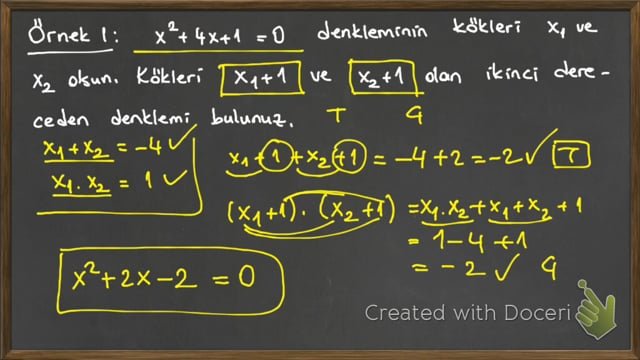 Örnek 1: x² + 4x + 1 = 0 denkleminin kökleri x₁ ve
x₂ olsun. Kökleri x₁+1 ve x₂+1 olan ikinci dere-
ceden denklemi bulunuz. T Ç
x₁ + x₂ = -4 ✓
x₁ . x₂ = 1 ✓
x₁+1+x₂+1 = -4+2 = -2 ✓ T
(x₁+1) . (x₂+1) = x₁.x₂ + x₁+x₂ + 1
= 1 - 4 + 1
= - 2 ✓ Ç
x² + 2x - 2 = 0
Created with Doceri